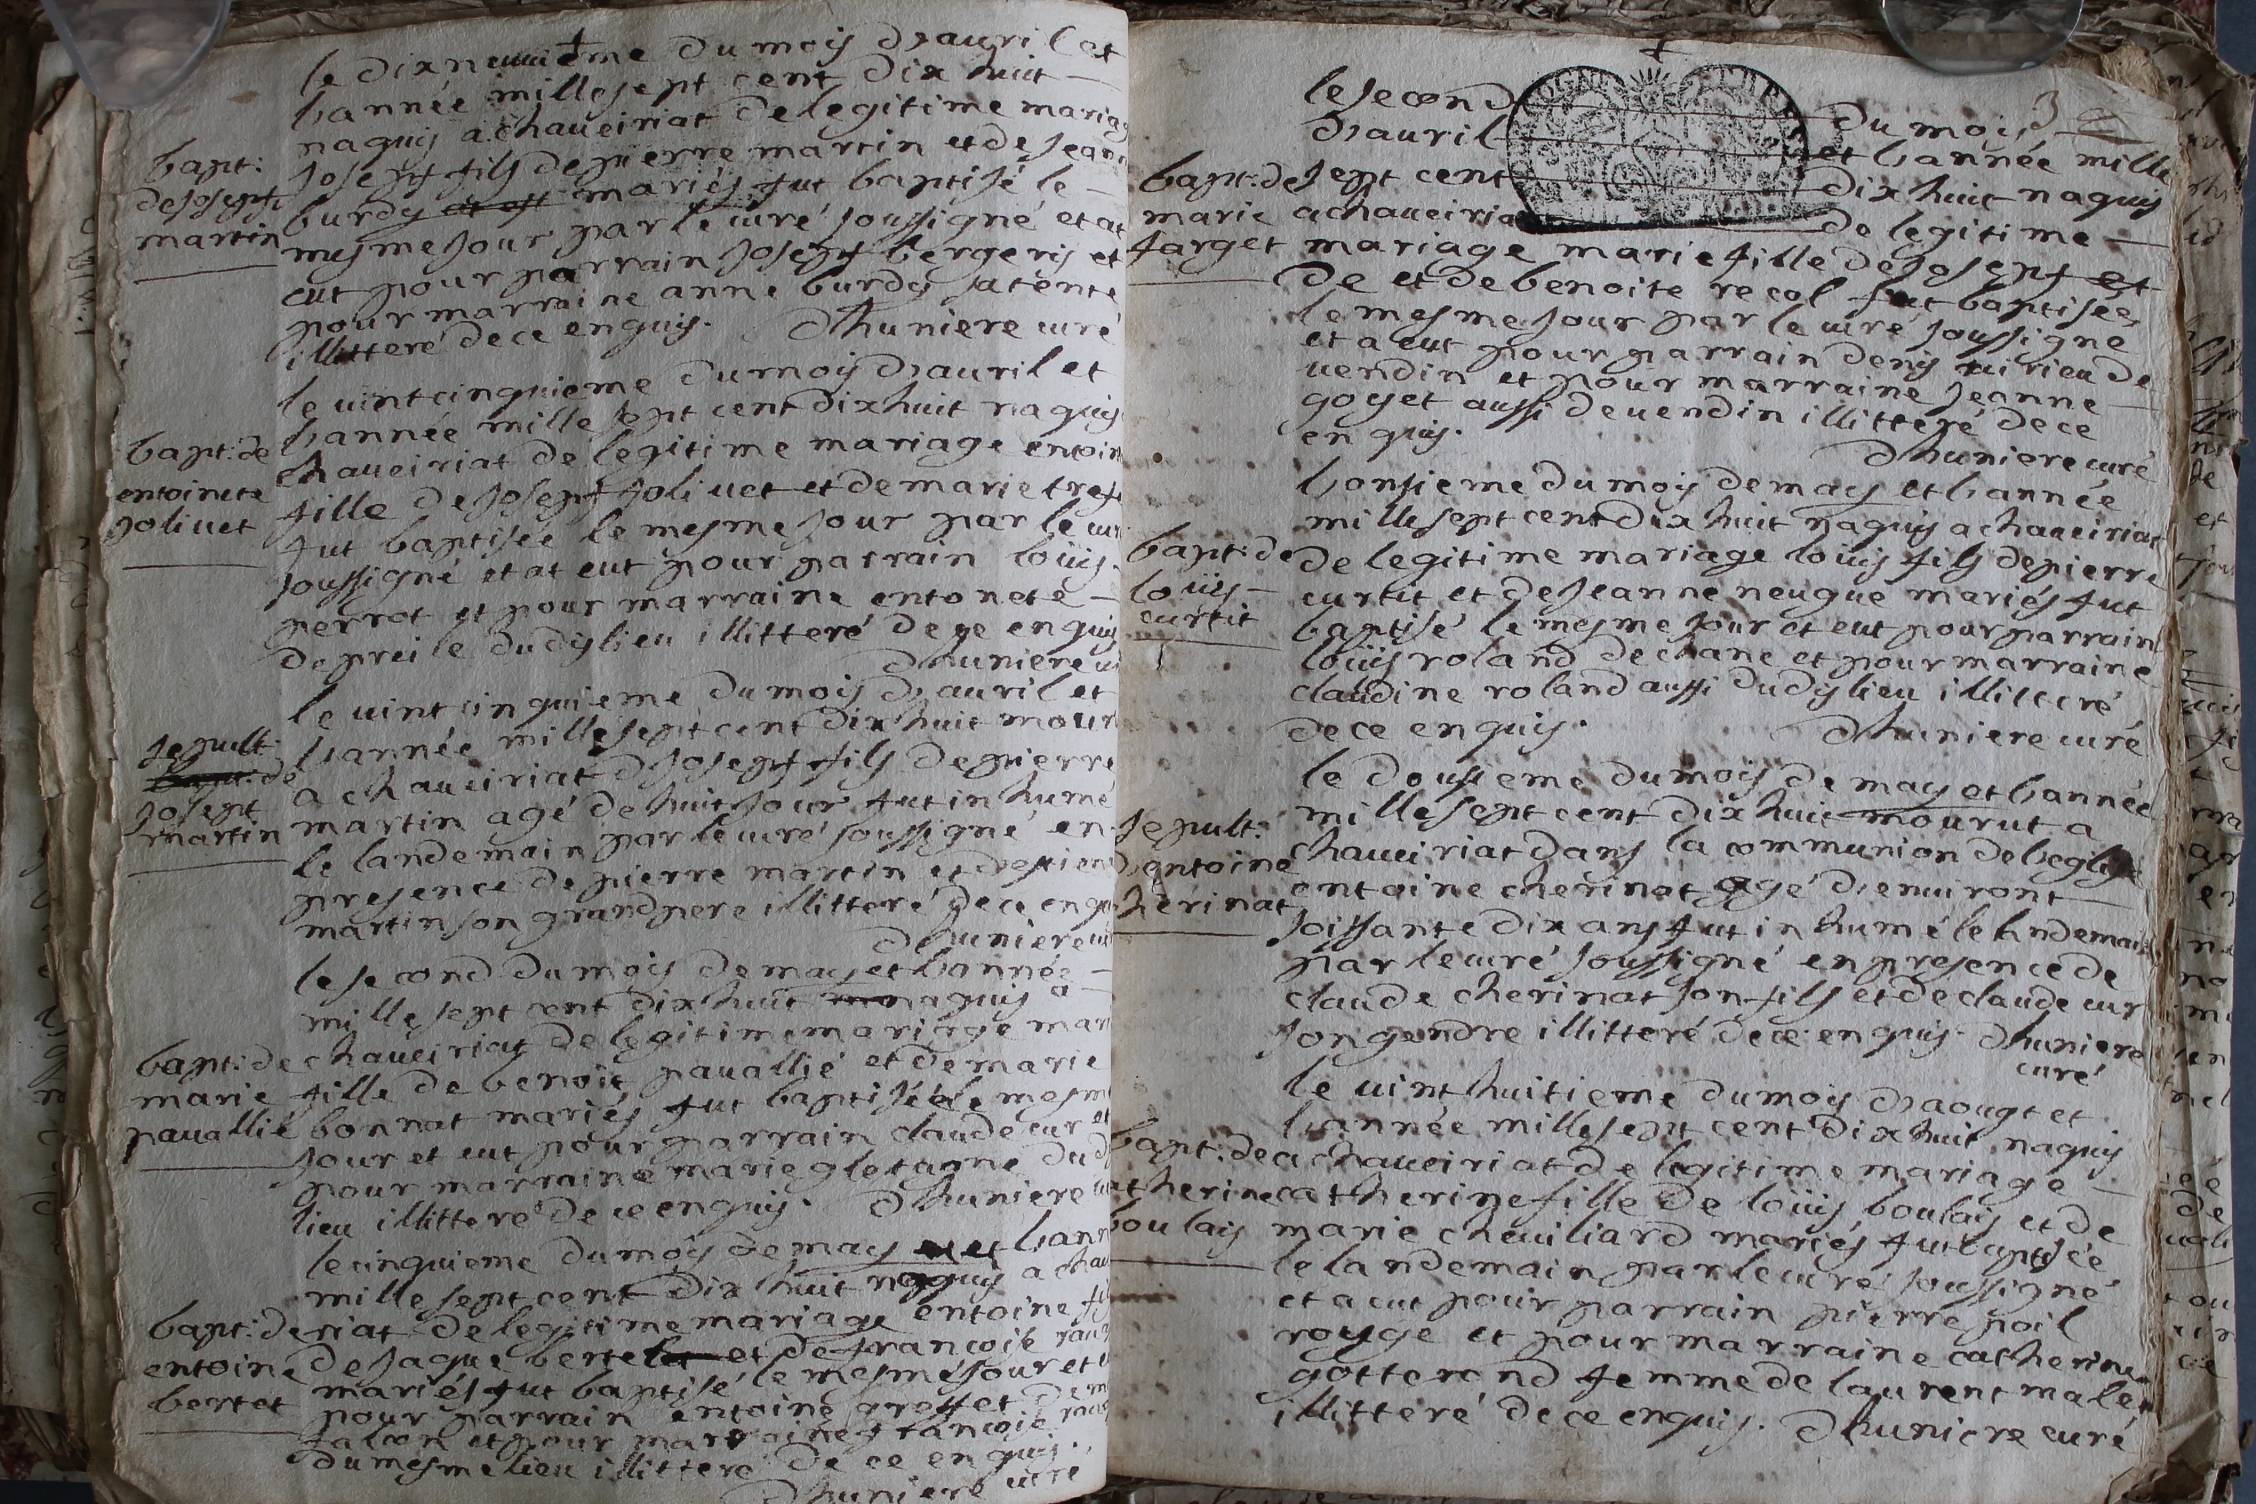 le dixneuuiéme du moys d'auril et
l'année mille sept cent dix huit
naquis a chaueiriat de legitime mariag
bapt:
de joseph
martin
joseph fils de pierre martin et de jean
burdy mariés fut baptisé le
mesme jour par le curé soussigné et at
eut pour parrain joseph bergeris et
pour marraine anne burdy sa tente
illitteré de ce enquis. Dhuniere curé
le uint cinquieme du moys d'auril et
l'année mille sept cent dix huit naquis
bapt: de
entoinete
joliuet
chaueiriat de legitime mariage entoin
fille de joseph joliuet et de marie tref
fut baptisée le mesme jour par le cur
soussigné et at eut pour parrain loüis
perrot et pour marraine entonete
de preile dudy lieu illitteré de ce enquis
Dhuniere cu
le uint cinquieme du mois d'auril et
l'année mille sept cent dix huit mour
sepult:
bapt: de
josept
martin
a chaueiriat joseph fils de pierre
martin agé de huit jour fut in humé
le landemain par le curé soussigné en
presence de pierre martin et d'estien
martin son grand pere illitteré de ce enqu
Dhuniere cu
le second du moys de may et l'année
mille sept cent dix huit naquis a
chaueiriat de legitime mariage mar
bapt: de
marie
pauallié
fille de benoit pauallié et de marie
bonnat mariés fut baptisée le mesm
jour et eut pour parrain claude cur et
pour marraine marie gletagne dud
lieu illitteré de ce enquis. Dhuniere cu
le cinquieme du moys de may et l'ann
mille sept cent dix huit naquis a chau
bapt: de
entoine
bertet
riat de legitime mariage entoine fil
de jaque bertet et de francoise
mariés fut baptisé le mesme jour et
pour parrain entoine grosset de
falcon et pour marraine francoise
du mesme lieu illitteré de ce enquis.
Dhuniere curé
le second du mois
d'auril et l'année mille
sept cent dix huit naquis
a chaueiria de legitime
bapt: de
marie
farget
mariage marie fille de joseph et
de et de benoite recol fut baptisée
le mesme jour par le curé soussigné
et a eut pour parrain denis uirieu de
uendin et pour marraine jeanne
goyet aussi de uendin illitteré de ce
enquis.
Dhuniere curé
l'onsieme du moys de may et l'année
mille sept cent dix huit naquis a chaueiriat
bapt: de
loüis
curtit
de legitime mariage loüis fils de pierre
curtit et de jeanne neugue mariés fut
baptisé le mesme jour et eut pour parrain
loüis roland de chane et pour marraine
claudine roland aussi dudy lieu illitteré
de ce enquis.
Dhuniere curé
le dousieme du moys de may et l'année
mille sept cent dix huit mourut a
sepult:
d'entoine
cherinat
chaueiriat dans la communion de l'eglise
entoine cherinat agé d'enuiront
soissante dix ans fut in humé le landemain
par le curé soussigné en presence de
claude cherinat son fils et de claude cur
son gendre illitteré de ce enquis. Dhuniere
curé
le uint huitieme du moys d'aougt et
l'année mille sept cent dix huit naquis
bapt: de
catherine
boulais
a chaueiriat de legitime mariage
catherine fille de loüis boulais et de
marie cheuiliard mariés fut baptisée
le landemain par le curé soussigné
et a eut pour parrain pierre poil
rouge et pour marraine catherine
gotterond femme de laurent male
illitteré de ce enquis. Dhuniere curé